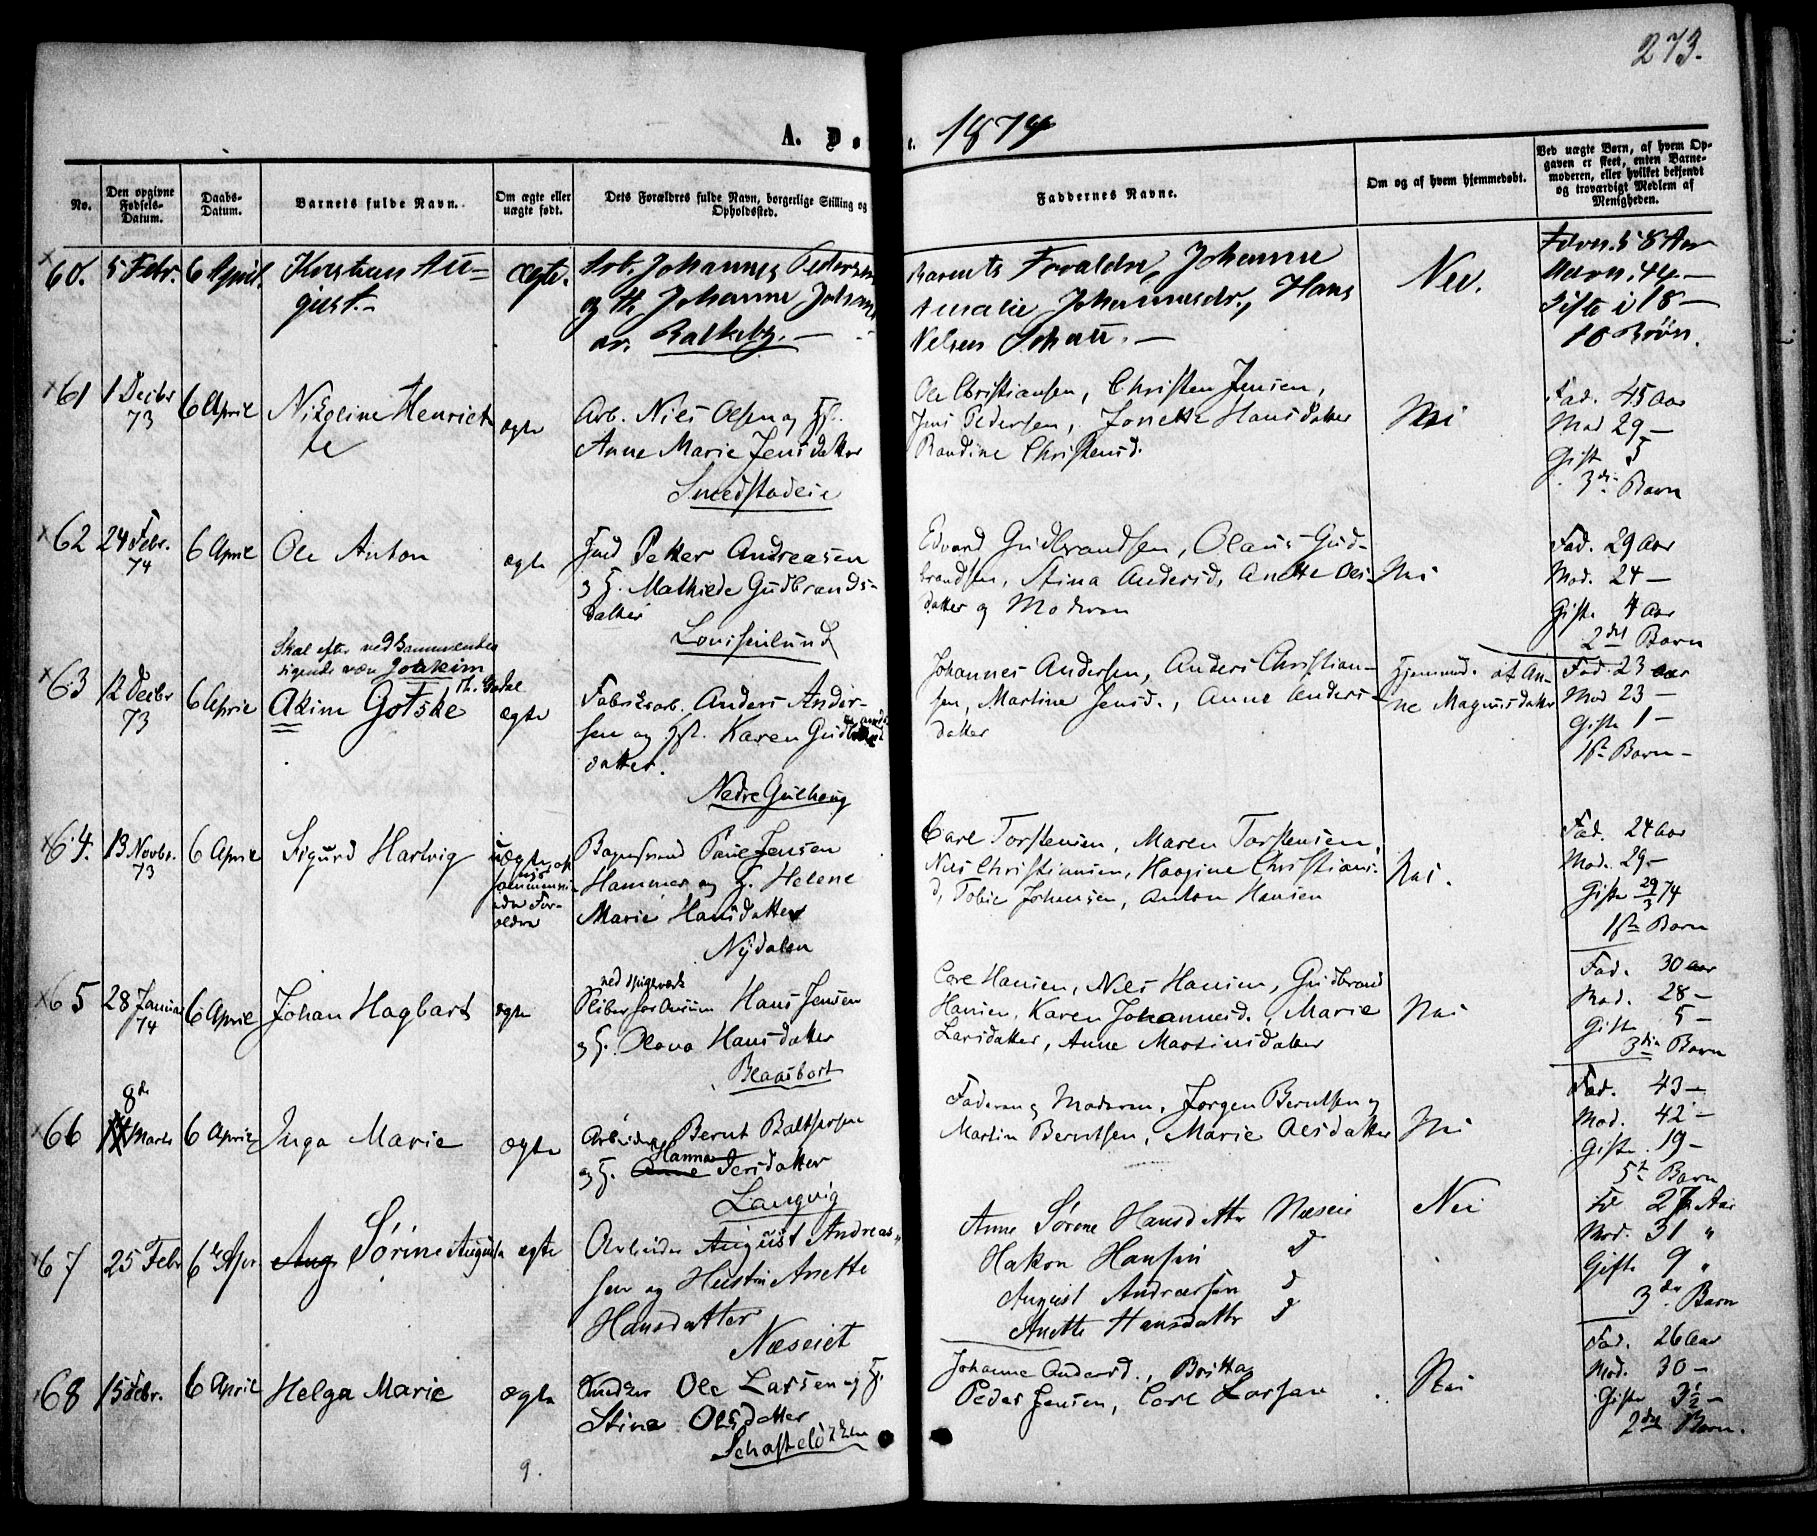 273.
A. Dø
e. 1874
No.
Den opgivne Fødsels-Datum.
Daabs-Datum.
Barnets fulde Navn.
Om ægte eller uægte født.
Dets Forældres fulde Navn, borgerlige Stilling og Opholdssted.
Faddernes Navne.
Om og af hvem hjemmedøbt.
Ved uægte Børn, af hvem Opgaven er skeet, enten Barnemoderen, eller hvilket bekjendt og troværdigt Medlem af Menigheden.
60. 5 Febr. 6 April. Kristian Au-
gust.-
ægte.
Arb. Johannes Pedersen
og H. Johanne Johan
Balkeby.
Barnets Forældre, Johanne
Amalie Johannesdr., Hans
Nelsen Schau.
Nei.
58 Aar
44 -
Gifte i 18 -
10 Børn.
61 1 Decbr 73 6 April Nikoline Henriet
te
ægte
Arb. Niels Olsen og H.
Anne Marie Jensdatter
Smedstadeie
Ole Christiansen, Christen Jensen,
Jens Pedersen, Jonette Hansdatter
Randine Christensd.
Nei
Fad. 45 Aar
Mod 29 -
Gift 5
3die Barn
62 24 Febr. 74 6 April Ole Anton
ægte
Petter Andreasen
og H. Mathilde Gudbrands-
datter
Louisenlund
Edvard Gudbrandsen, Olaus Gud-
brandsen, Stina Andersd, Anette Ols-
datter og Moderen
Nei
Fad. 29 Aar
Mod. 24 -
Gifte 4 Aar
2det Barn
Skal efter
sigende være Joakim
63 12 Decbr 73 6 April Akim Gotske
ægte
Fabriksarb. Anders Ander-
sen og H. Karen Gudbrands
datter.
Nedre Gulhaug
Johannes Andersen, Anders Christian-
sen, Martine Jensd., Anne Anders-
datter
Hjemmed. af An-
ne Magnusdatter
Fad. 23 aar
Mod 23 -
Gifte 1 -
1ste Barn -
64. 13 Novbr. 73 6 April Sigurd Hartvig
uægte
oldre
Paul Jensen
Hammer og H. Helene
Marie Hansdatter
Nydalen
Carl Torstensen, Maren Torstensen,
Niels Christiansen, Haagine Christians-
d, Tobie Johansen, Anton Hansen
Nei.
Fad. 24 aar
Mod. 29 -
Gifte 29/3 74
1ste Barn
65 28 Januar 74 6 April Johan Hagbart
ægte
Hans Jensen
og H. Olava Hansdatter
Blaasbort
Carl Hansen, Nils Hansen, Gudbrand
Hansen, Karen Johannesd., Marie
Larsdatter, Anne Martinsdatter
Nei
Fad. 30 aar
Mod. 28 -
Gifte 5 -
3die Barn
8de
66 Marts 6 April Inga Marie
ægte
Arbeider Bernt Baltsersen
Hanna
og H. Anne Iversdatter
Langvig
Faderen og Moderen, Jørgen Berntsen og
Martin Berntsen, Marie Olsdatter
Nei
Fad. 43 -
Mod. 42 -
Gifte 19 -
5te Barn
67 25 Febr 6te Apr Aug Sørine Augusta
ægte
Arbeider August Andreas-
sen og Hustru Anette
Hansdatter
Næseiet
Anne Sørine Hansdatter Næseiet
Hakon Hansen d
August Andreassen d
Anette Hansdatter d
Nei
27 Aar
Mod. 31 "
Gifte 9 "
3die Barn
68 15 Febr. 6 April Helga Marie
ægte
Snedker Ole Larsen og H.
Stine Olsdatter
Schafteløkken
Johanne Andersd., Britta
Peder Jensen, Carl Larsen
Nei
Fad. 26 Aar
Mod. 30 -
Gifte 3 1/2 -
2det Barn.
9.